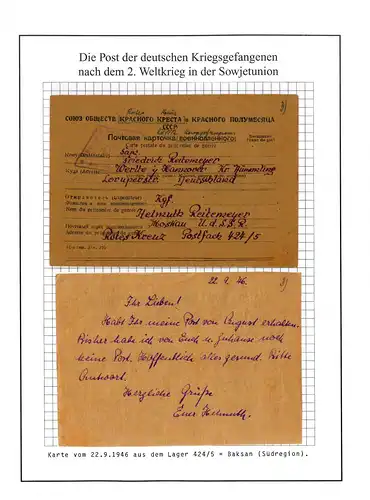 Die Post der deutschen Kriegsgefangenen
nach dem 2. Weltkrieg in der Sowjetunion
СОЮЗ ОБЩЕСТВ КРАСНОГО КРЕСТА и КРАСНОГО ПОЛУМЕСЯЦА
СССР
Почтовая карточка военнопленного
Carte postale du prisonnier de guerre
Friedrich Reitemeyer
Werlte
Loruperstr. Deutschland
Kgf.
Helmuth Reitemeyer
Moskau U.d.S.S.R.
Rotes Kreuz Postfach 424/5
22. 9. 46.
Ihr Lieben!
Habt Ihr meine Post von August erhalten.
Bisher habe ich von Euch u. Zuhause noch
keine Post. Hoffentlich alles gesund. Bitte
Antwort.
Herzliche Grüße
Euer Helmuth.
Karte vom 22.9.1946 aus dem Lager 424/5 = Baksan (Südregion).